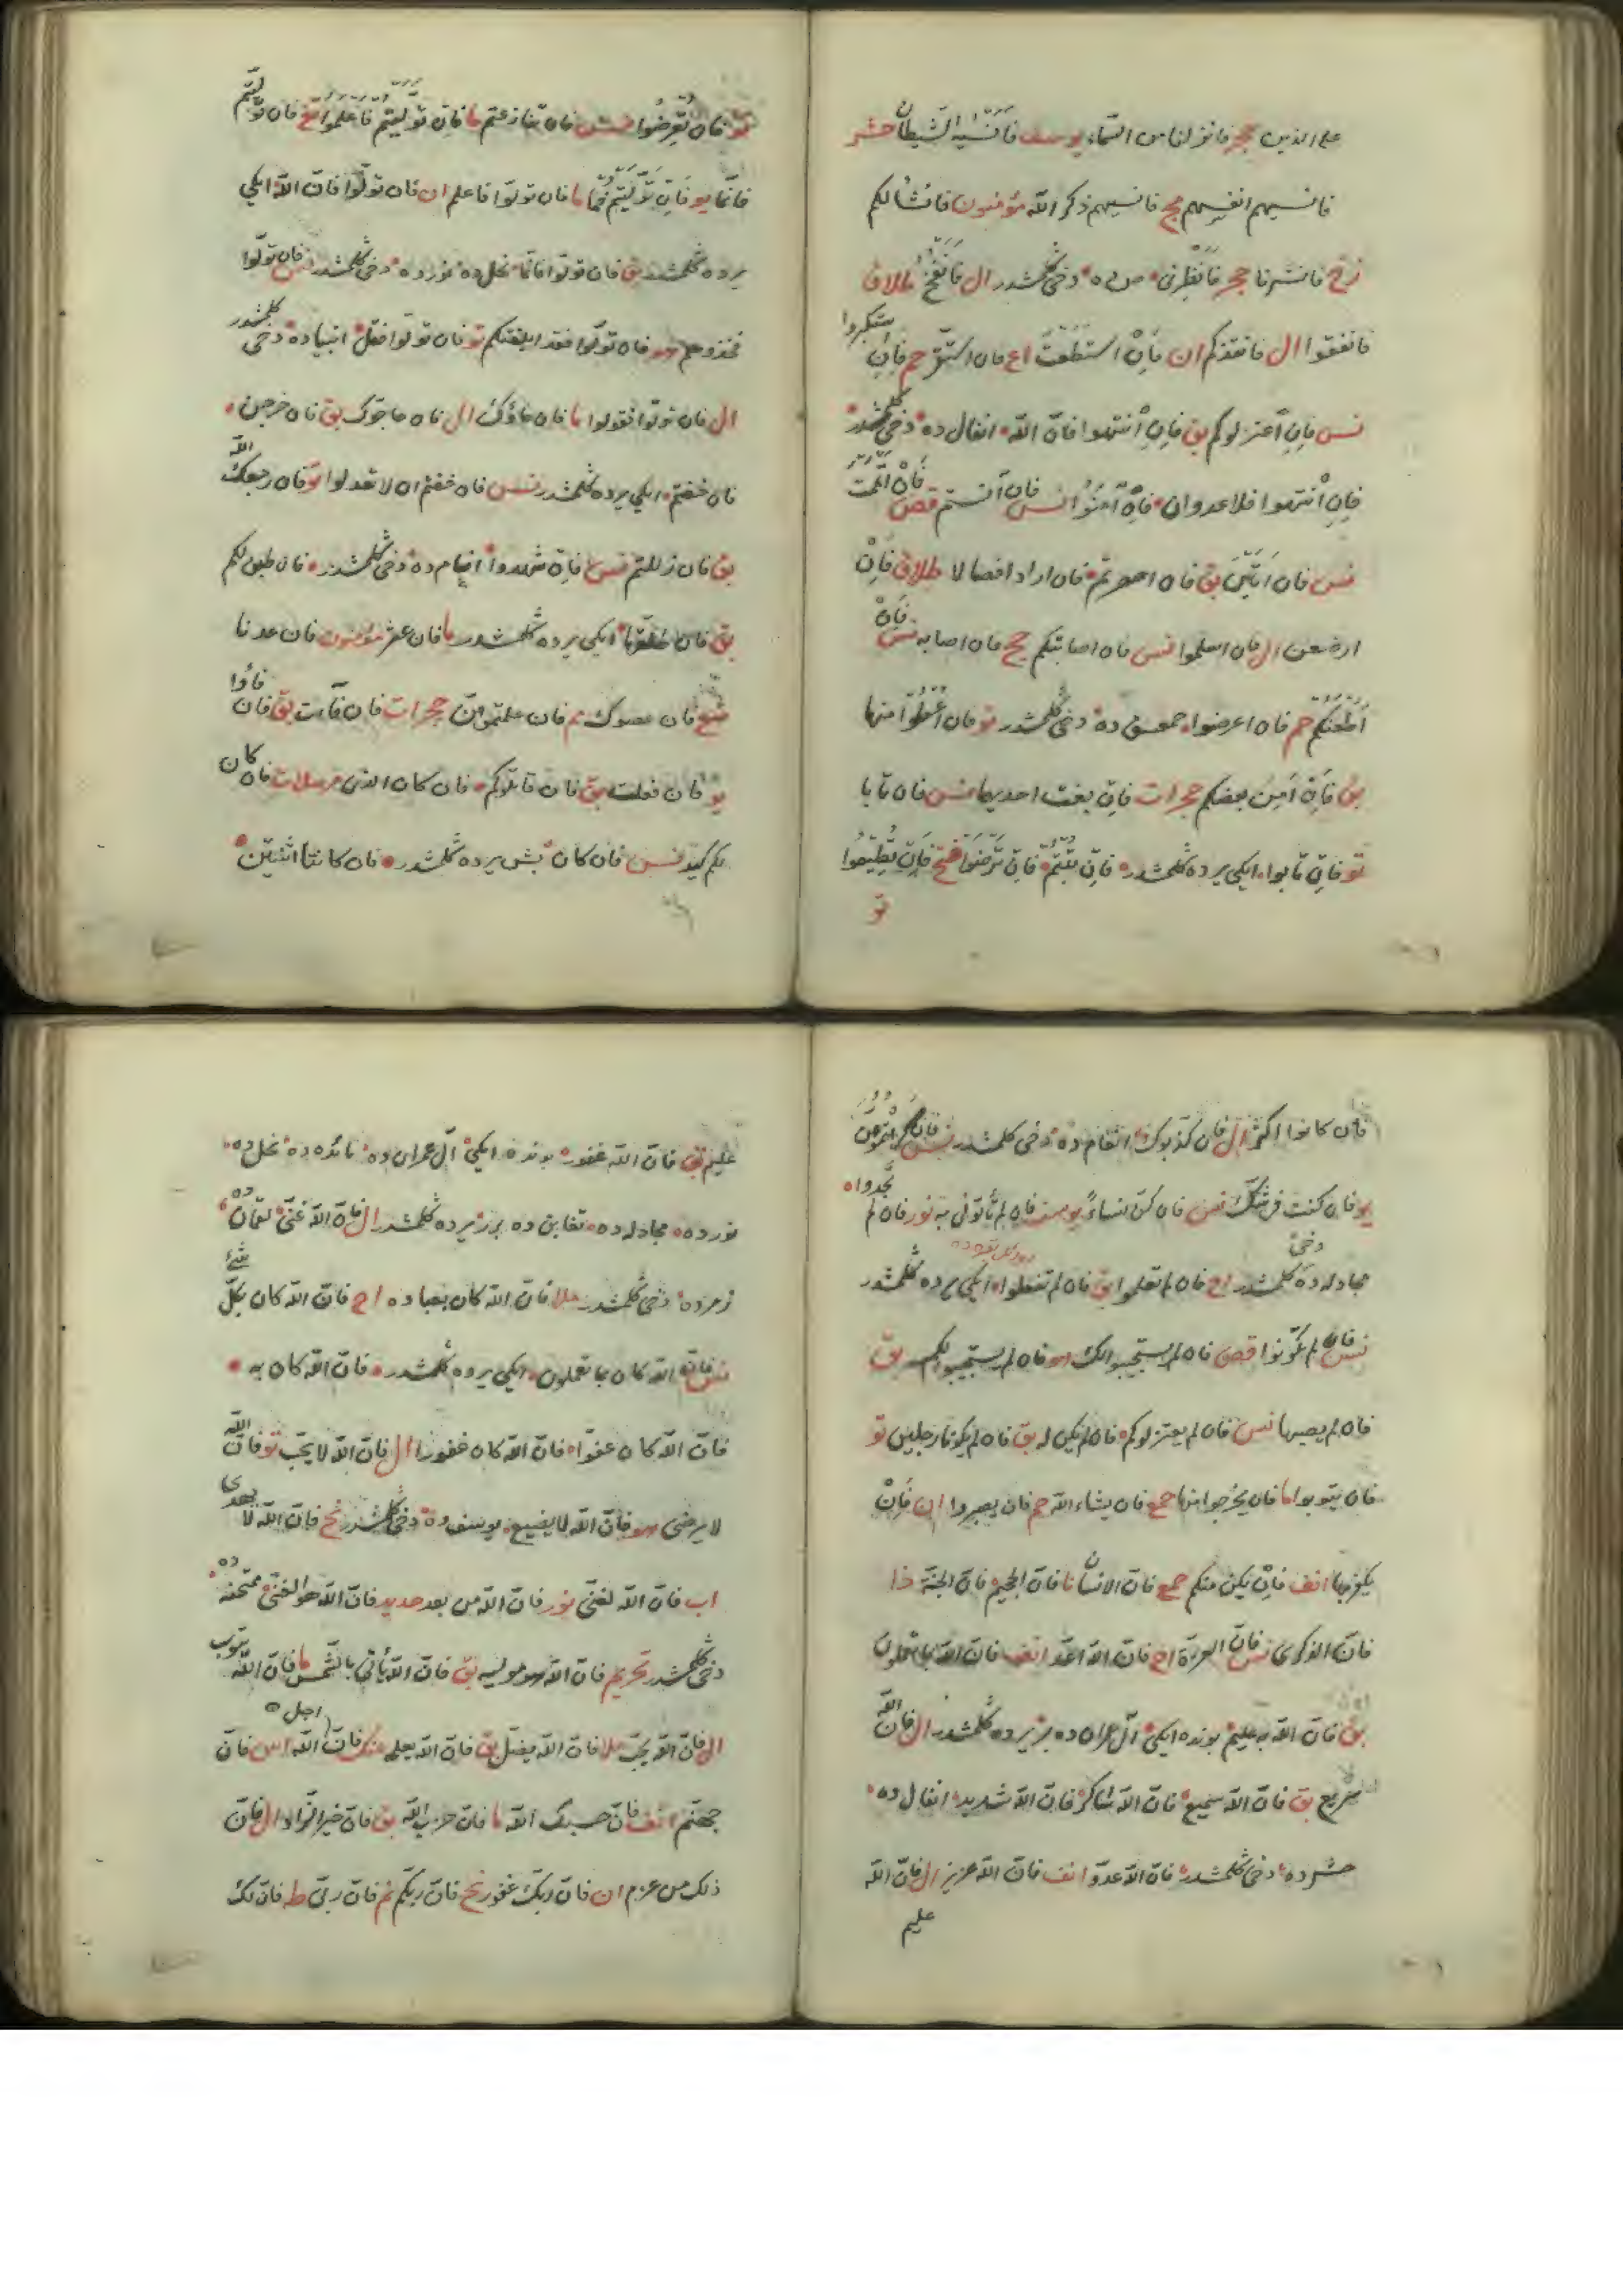 على الذين حجر فانزلنا من السماء يوسف فَاَنْسٰيهُ الشَّيطان حشر
فانسيهم انفسهم مج فانسيهم ذكر الله مؤمنون فانشأ لكم
زخ فانشرنا حجر فَاَنْظِرْنى ص ده دخى كلمشدر ال فَاَنْفُخُ طلاق
فانفقوا ال فانقذكم ان فَاِنْ استطعتَ اع فان استقرّ حم فَاِنِ استكبروا
نس فَاِنِ اعْتزلوكم بق فَاِنِ انْتهوا فانّ الله انفال ده دخى كلمشدر
فَاِنِ انْتهوا فلا عدوان فَاِنْ اٰمَنُوا نس فان آنستم قصص فَاِنْ اَتْمَمْتَ
نس فان اَتَيْنَ بق فان احصرتم فان ارادا فصالا طلاق فَاِنْ
ارضعن ال فان اسلموا نس فان اصابتكم حج فان اصابه نس فَاِنْ
اَطَعْنَكُمْ حم فان اعرضوا حمعسق ده دخى كلمشدر تو فان اُعْطُوا منها
بق فَاِنْ اَمِنَ بعضكم حجرات فَاِنْ بغت احديهما نس فان تابا
تو فَاِنْ تابوا ايكى يرده كلمشدر فَاِنْ تُبْتُمْ فَاِنْ تَرْضَوْا فتح فَاِنْ تُطيعُوا
تو
تو فان تُعْرِضُوا نس فان تنازعتم ما فان توليتم فاعلموا تغ فان توليتم
فانّما يو فَاِنْ تَوَلَّيْتُمْ فما ما فان تولّوا فاعلم ان فان تولّوا فانّ الله ايكى
يرده كلمشدر بق فان تولّوا فانّما نحل ده نور ده دخى كلمشدر نس فان تولّوا
فخذوهم هو فان تولّوا فقد ابلغتكم تو فان تولّوا فقل انبيا ده دخى كلمشدر
ال فان تولّوا فقولوا ما فان جاؤك ال فان حاجّوك بق فان خرجن
فان خفتم ايكى يرده كلمشدر نس فان خفتم ان لا تعدلوا تو فان رجعك الله
بق فان زللتم نس فان شهدوا انعام ده دخى كلمشدر فان طبن لكم
بق فان طلّقها ايكى يرده كلمشدر ما فان عثر مؤمنون فان عدنا
شع فان عصوك مم فان علمتموهنّ حجرات فان فآءت بق فان فاؤا
يو فان فعلت بق فان قاتلوكم فان كان الذى مرسلات فان كان
لكم كيد نس فان كان بش يرده كلمشدر فان كانتا اثنتين
فان كانوا اكثر ال فان كذّبوك انعام ده دخى كلمشدر نس فان كرهتموهنّ
يو فان كنت فى شكّ نس فان كنّ نساءً يوسف فان لم تأتونى به نور فان لم تجدوا
مجادله ده دخى كلمشدر اح فان لم تعلموا بق فان لم تفعلوا ايكى يرده كلمشدر
نس فان لم تكونوا قصص فان لم يستجيبوا لك هو فان لم يستجيبوا لكم بق
فان لم يصبها نس فان لم يعتزلوكم فان لم يكن له بق فان لم يكونا رجلين تو
فان يتوبوا ما فان يخرجوا منها حمع فان يشاء الله حم فان يصبروا ان فَاِنْ
يكفر بها انف فَاِنْ يكن منكم حمع فانّ الانسان نا فانّ الجحيم فانّ الجنّة ذا
فانّ الذكرى نس فانّ العزّة اح فانّ الله اعدّ انف فانّ الله بما تعملون
بق فانّ الله به عليم بونده ايكى آل عمران ده بر يرده كلمشدر ال فانّ الله
سريع بق فانّ الله سميع فانّ الله شاكر فانّ الله شديد انفال ده
حشر ده دخى كلمشدر فانّ الله عدوّ انف فانّ الله عزيز ال فانّ الله
عليم
عليم بق فانّ الله غفور بونده ايكى آل عمران ده مائده ده نحل ده
نور ده مجادله ده تغابن ده برر يرده كلمشدر ال فانّ الله غنىّ لقمان ده
زمر ده دخى كلمشدر ملا فانّ الله كان بعباده اح فانّ الله كان بكلّ شئ
نس فانّ الله كان بما تعملون ايكى يرده كلمشدر فانّ الله كان به
فانّ الله كان عفوّا فانّ الله كان غفورا ال فانّ الله لا يحبّ تو فانّ الله
لا يرضى هو فانّ الله لا يضيع يوسف ده دخى كلمشدر نح فانّ الله لا يهدى
اب فانّ الله لغنىّ نور فانّ الله من بعد حديد فانّ الله هو الغنىّ ممتحنه ده
دخى كلمشدر تحريم فانّ الله هو موليه بق فانّ الله يأتى بالشّمس ما فانّ الله يتوب
ال فانّ الله يحبّ ملا فانّ الله يضلّ بق فانّ الله يعلمه عنك فانّ اجل الله اس فانّ
جهنّم انف فانّ حسبك الله ما فانّ حزب الله بق فانّ خير الزّاد ال فانّ
ذلك من عزم ان فانّ ربّك غفور نح فانّ ربّكم نم فانّ ربّى ط فانّ لك